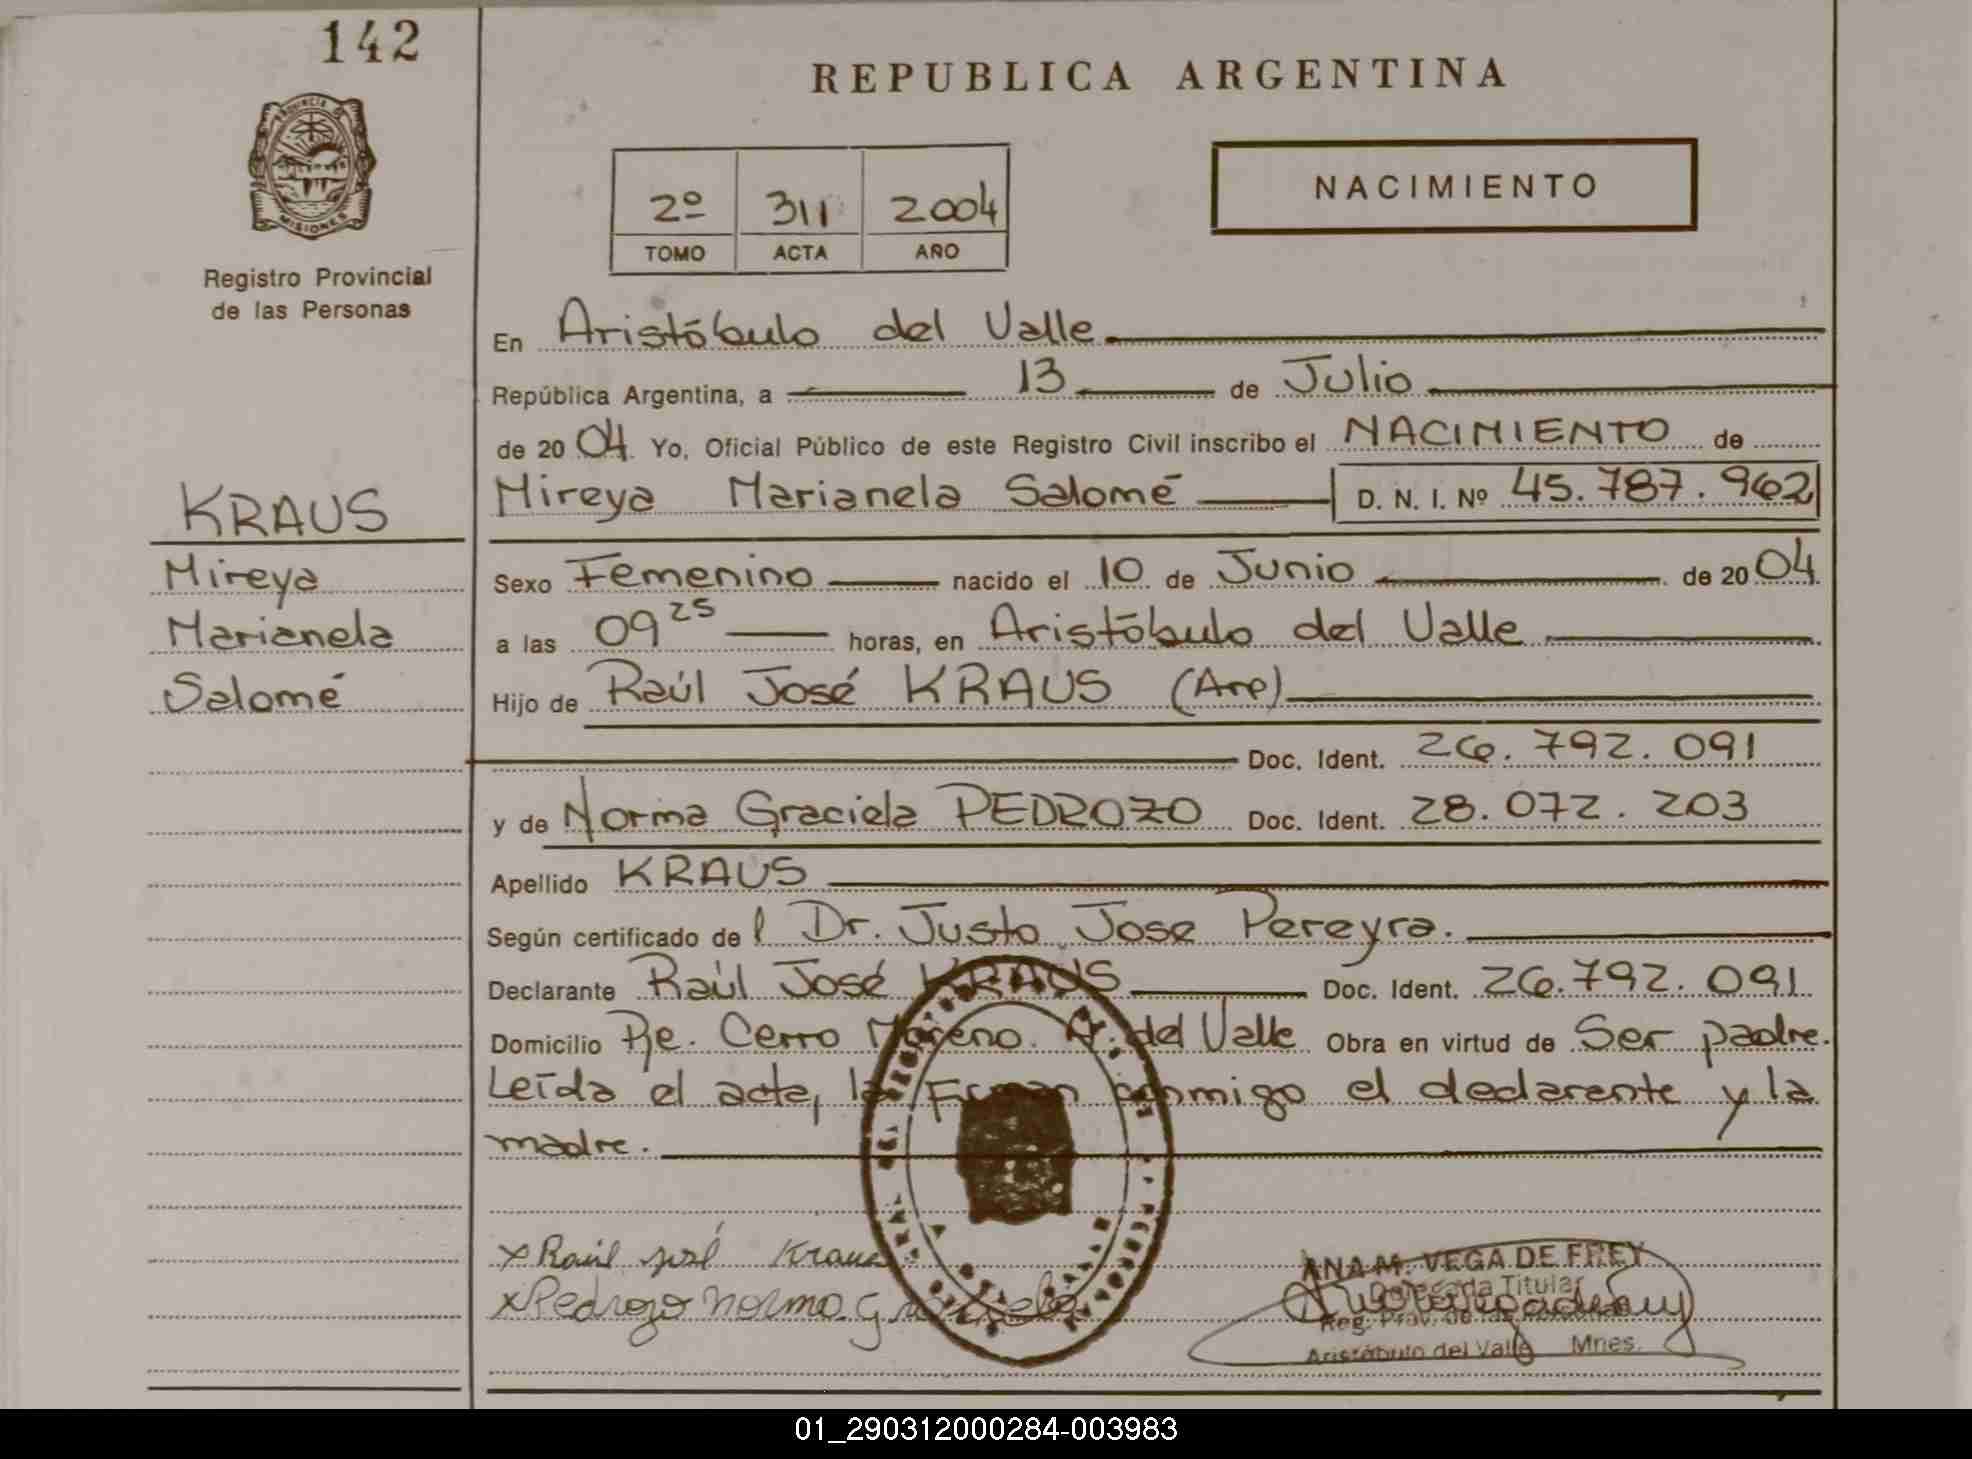 142
PROVINCIA DE
MISIONES
Registro Provincial
de las Personas
REPUBLICA ARGENTINA
2º 311 2004
TOMO ACTA AÑO
NACIMIENTO
En Aristóbulo del Valle
República Argentina, a 13 de Julio
de 2004. Yo, Oficial Público de este Registro Civil inscribo el NACIMIENTO de
Mireya Marianela Salomé D. N. I. Nº 45.787.962
KRAUS
Mireya
Marianela
Salomé
Sexo Femenino nacido el 10 de Junio de 2004
a las 09 25 horas, en Aristóbulo del Valle
Hijo de Raúl José KRAUS (Arg)
Doc. Ident. 26.792.091
y de Norma Graciela PEDROZO Doc. Ident. 28.072.203
Apellido KRAUS
Según certificado del Dr. Justo Jose Pereyra.
Declarante Raúl José KRAUS Doc. Ident. 26.792.091
Domicilio Pje. Cerro Moreno. A. del Valle Obra en virtud de Ser padre.
Leída el acta, la Firman conmigo el declarante y la
madre.
x Raúl José Kraus
x Pedrozo Norma Graciela
ANA M. VEGA DE FREY
Delegada Titular
Reg. Prov. de las Personas
Aristóbulo del Valle Mnes.
01_290312000284-003983